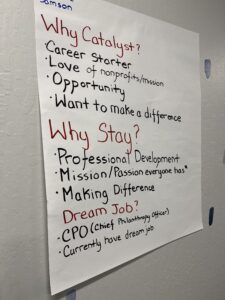 Samson
Why Catalyst?
· Career Starter
· Love of nonprofits/mission
· Opportunity
· Want to make a difference
Why Stay?
· Professional Development
· Mission/Passion everyone has*
· Making Difference
Dream Job?
· CPO (Chief Philanthropy Officer)
· Currently have dream job